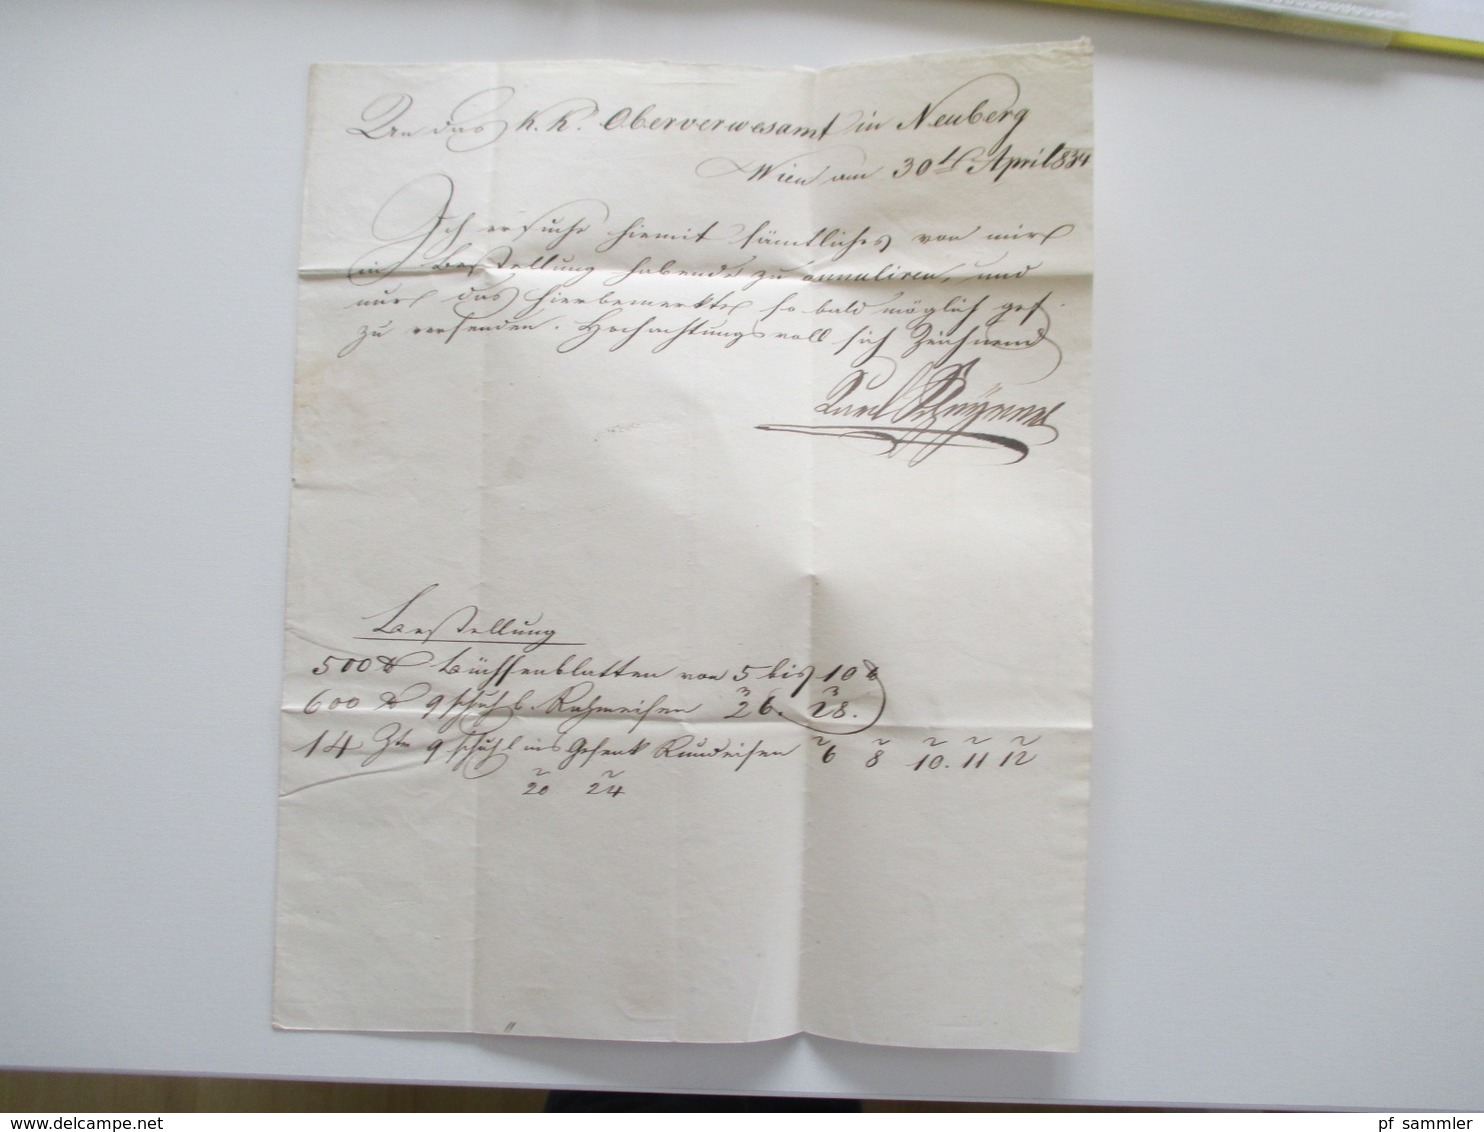 An das k. k. Oberverwesamt in Neuberg
Wien am 30t April 834
Ich ersuche hiemit sämtliches von mir
in Bestellung habende zu annuliren, und
nur das hierbemerkte so bald möglich gef.
zu versenden. Hochachtungsvoll sich Zeichnend
Karl
Bestellung
500 ℔ Büchsenblatten von 5 bis 10 ℔
600 ℔ 9 schuh. Rahmeisen 26. 28.
14 Ztn 9 schuh ins Gesenk Rundeisen 6 8 10. 11 12
20 24
pf sammler